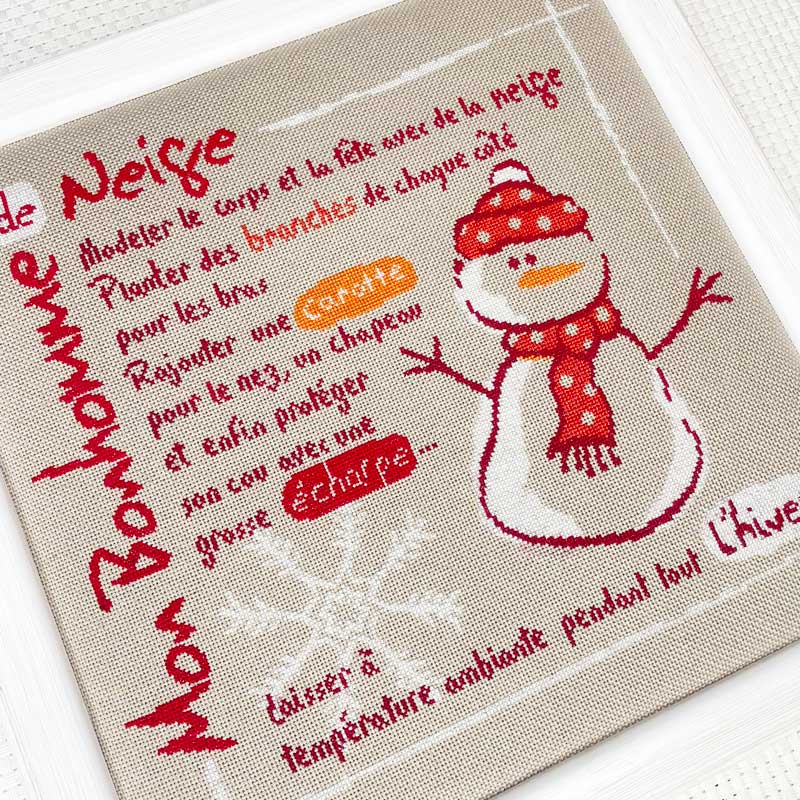 Mon Bonhomme
de Neige
Modeler le corps et la tête avec de la neige
Planter des branches de chaque côté
pour les bras
Rajouter une carotte
pour le nez, un chapeau
et enfin protéger
son cou avec une
grosse écharpe...
Laisser à
température ambiante pendant tout L'hive